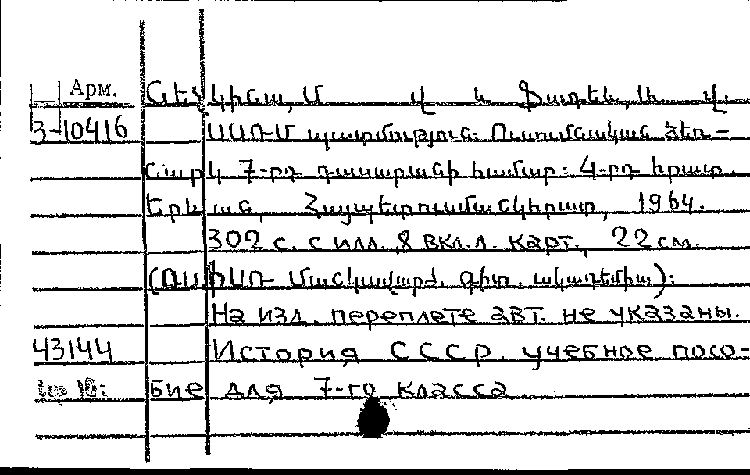 Арм. Նեչկինա, Մ վ և Ֆադեև, Ա. վ.
3-10416 ՍՍՌՄ պատմություն: Ուսումնական ձեռ-
նարկ 7-րդ դասարանի համար: 4-րդ հրատ.
Երևան, Հայպետուսմանկհրատ, 1964.
302 с. с илл., 8 вкл. л. карт., 22 см.
(ՌՍՖՍՌ Մանկավարժ. գիտ. ակադեմիա):
На изд. переплете авт. не указаны.
43144 История СССР. учебное посо-
бие для 7-го класса